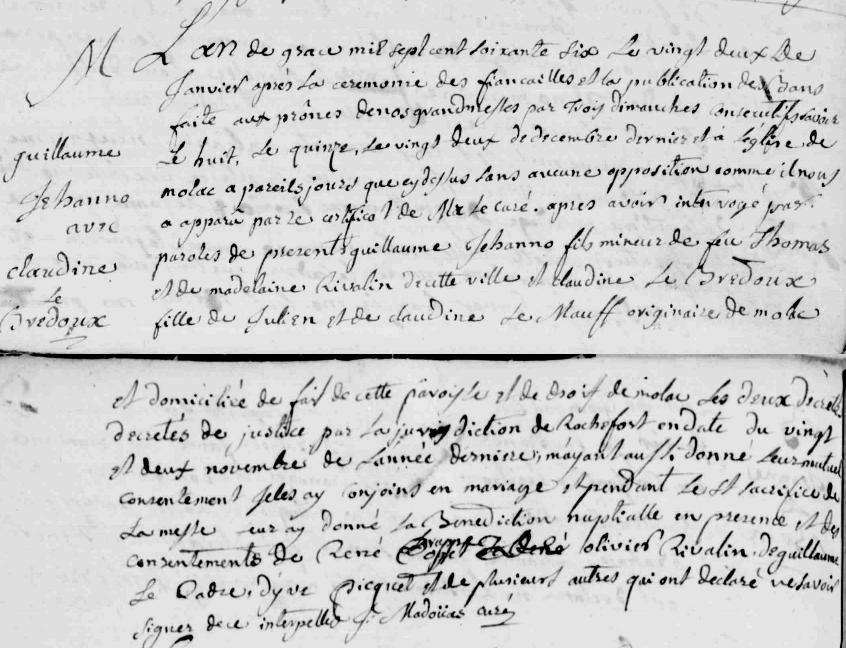 M
guillaume
Jehanno
avec
claudine
Le
Bredoux
L'an de grace mil sept cent soixante six Le vingt deux De
Janvier après La ceremonie des fiancailles et la publication des bans
faite aux prônes de nos grandmesses par trois dimanches consecutifs savoir
Le huit, Le quinze, Le vingt deux de decembre dernier et à L'eglise de
molac a pareils jours que cy dessus sans aucune opposition comme il nous
a apparu par le certificat de Mr Le curé. apres avoir interrogé par
paroles de presents guillaume Jehanno fils mineur de feu Thomas
et de madelaine Rivalin de cette ville et claudine Le Bredoux
fille de Julien et de claudine Le Mauff originaire de molac
et domiciliée de fait de cette paroisse et de droit de molac Les deux
decretés de justice par La jurisdiction de Rochefort en date du vingt
et deux novembre de L'année derniere, m'ayant aussi donné Leur mutuel
consentement je les ay conjoins en mariage et pendant Le st sacrifice de
La messe leur ay donné La Benediction nuptialle en presence et des
consentements de René olivier Rivalin, de guillaume
Le Cadre, d'yve Picquet et de plusieurs autres qui ont declaré ne savoir
signer de ce interpellés J. Madoüas curé